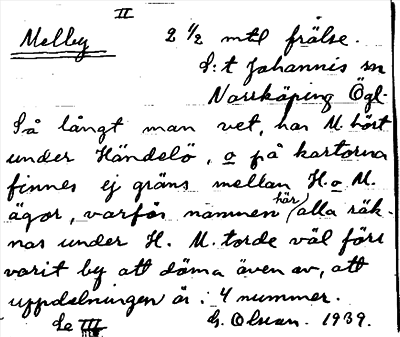 II
Melby 2 1/2 mtl frälse.
S:t Johannis sn
Norrköping Ögl.
Så långt man vet, har M. hört
under Händelö, o på kartorna
finnes ej gräns mellan H. o M.
ägor, varför namnen här alla räk-
nas under H. M. torde väl förr
varit by att döma även av, att
uppdelningen är i 4 nummer.
Se III G. Olson. 1939.